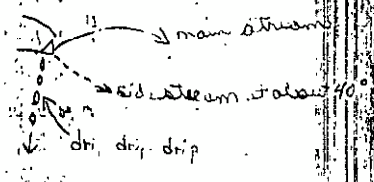 main stream
side stream at about 40°
dri, drip drip